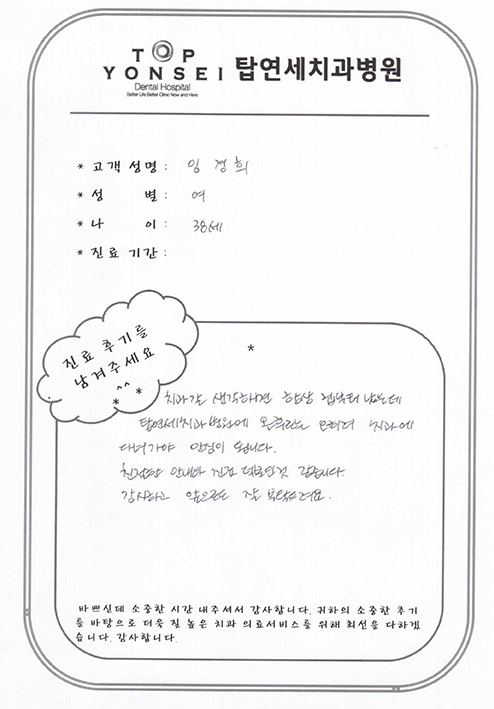 TOP
YONSEI 탑연세치과병원
Dental Hospital
Better Life Better Clinic Now and Here
* 고객 성명 : 임경희
* 성 별 : 여
* 나 이 : 38세
* 진료 기간 :
진료 후기를
남겨주세요
^^
* *
*
치과를 생각하면 항상 겁부터 났는데
탑연세치과병원에 온 후로는 오히려 치과에
다녀가야 안심이 됩니다.
친절한 안내와 진료
감사하고 앞으로도 잘 부탁드려요.
바쁘신데 소중한 시간 내주셔서 감사합니다. 귀하의 소중한 후기
를 바탕으로 더욱 질 높은 치과 의료서비스를 위해 최선을 다하겠
습니다. 감사합니다.